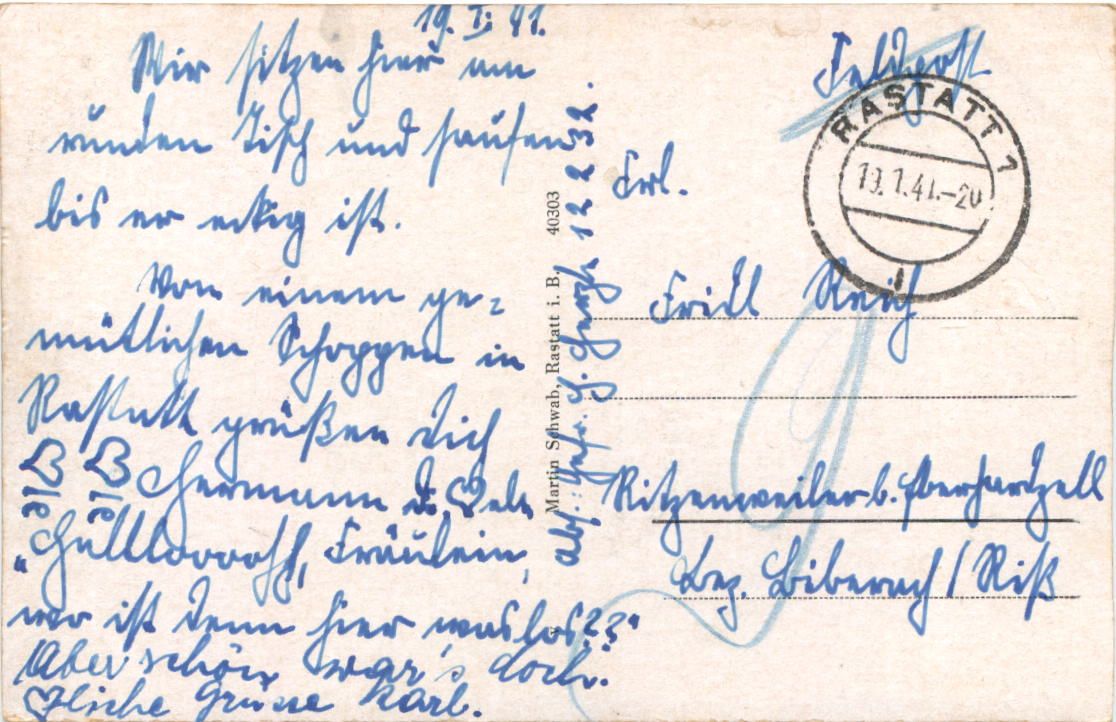 19. I. 41.
Wir sitzen hier am
runden Tisch und saufen
bis er eckig ist.
Von einem ge-
mütlichen Schoppen in
Rastatt grüßen Dich
Hermann
"Hallloooohh, Fräulein,
wo ist denn hier was los??"
Aber schön war's doch.
♡zliche Grüsse Karl.
Martin Schwab, Rastatt i. B. 40303
Abs.: Gefr. H. 12 2 32.
Feldpost
RASTATT 1
19.1.41.-20
Frl.
Fridl Reich
Ritzenweiler b. Eberhardzell
Bez. Biberach/Riß